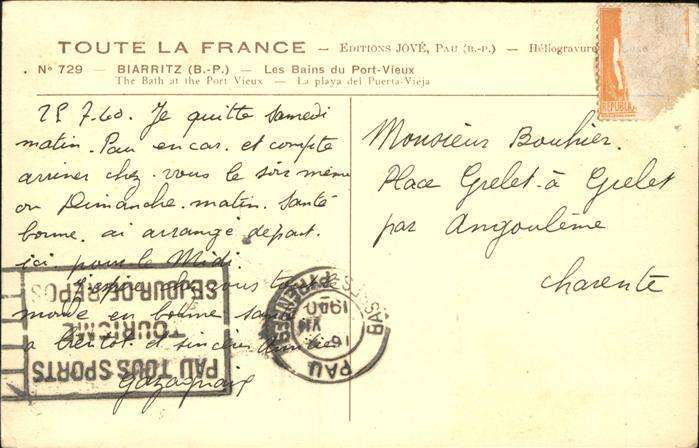 TOUTE LA FRANCE — EDITIONS JOVÉ, PAU (B.-P.) — Héliogravure
Nº 729 — BIARRITZ (B.-P.) — Les Bains du Port-Vieux
The Bath at the Port Vieux — La playa del Puerta-Vieja
7.40. Je quitte samedi
matin. Pau en car. et compte
arriver chez vous le soir même
ou Dimanche. matin. Santé
bonne. ai arrangé départ.
ici pour le Midi.
J'espère chez vous tout le
monde en bonne santé
a bientôt et sincères
Monsieur Bouhier.
Place Grelet. à Grelet
par Angoulême
Charente
REPUBLIQ
PAU TOUS SPORTS
TOURISME
SEJOUR DE REPOS
PAU
BASSES-PYRENEES
16
VII
1940